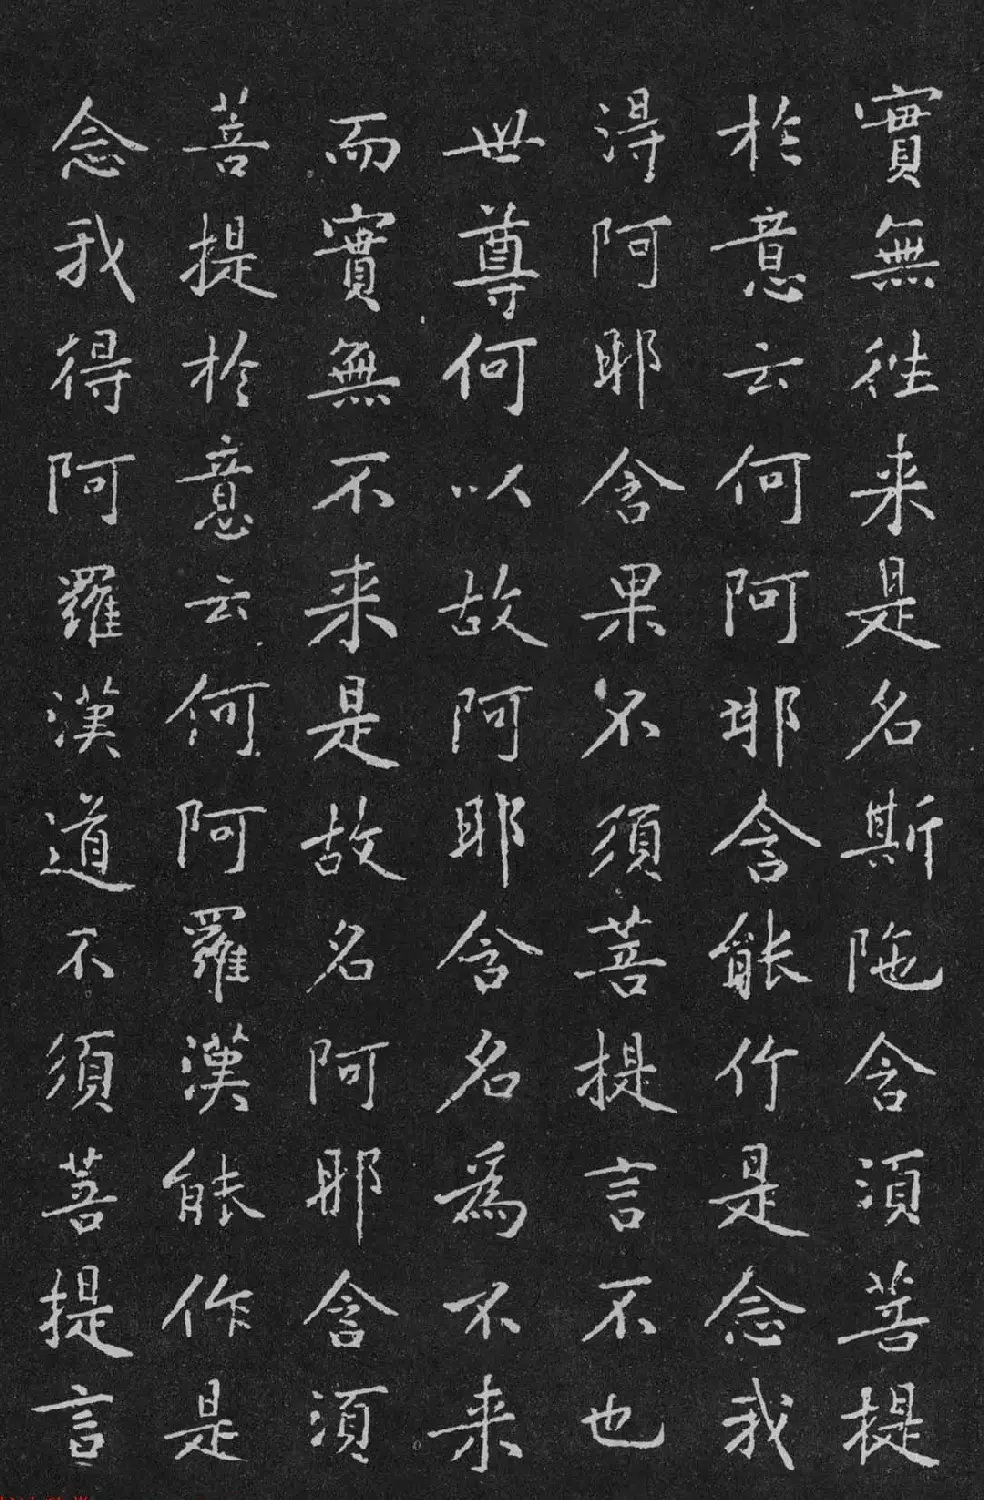 實無往来是名斯陁含湏菩提
於意云何阿耶含能作是念我
淂阿耶含果不須菩提言不也
世尊何以故阿耶含名為不来
而實無不来是故名阿耶含湏
菩提於意云何阿羅漢能作是
念我得阿羅漢道不須菩提言